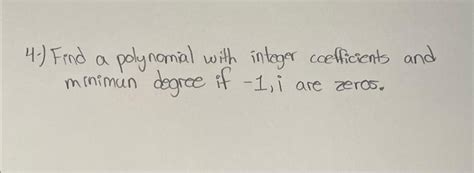 4.) Find a polynomial with integer coefficients and
minimun degree if -1, i are zeros.